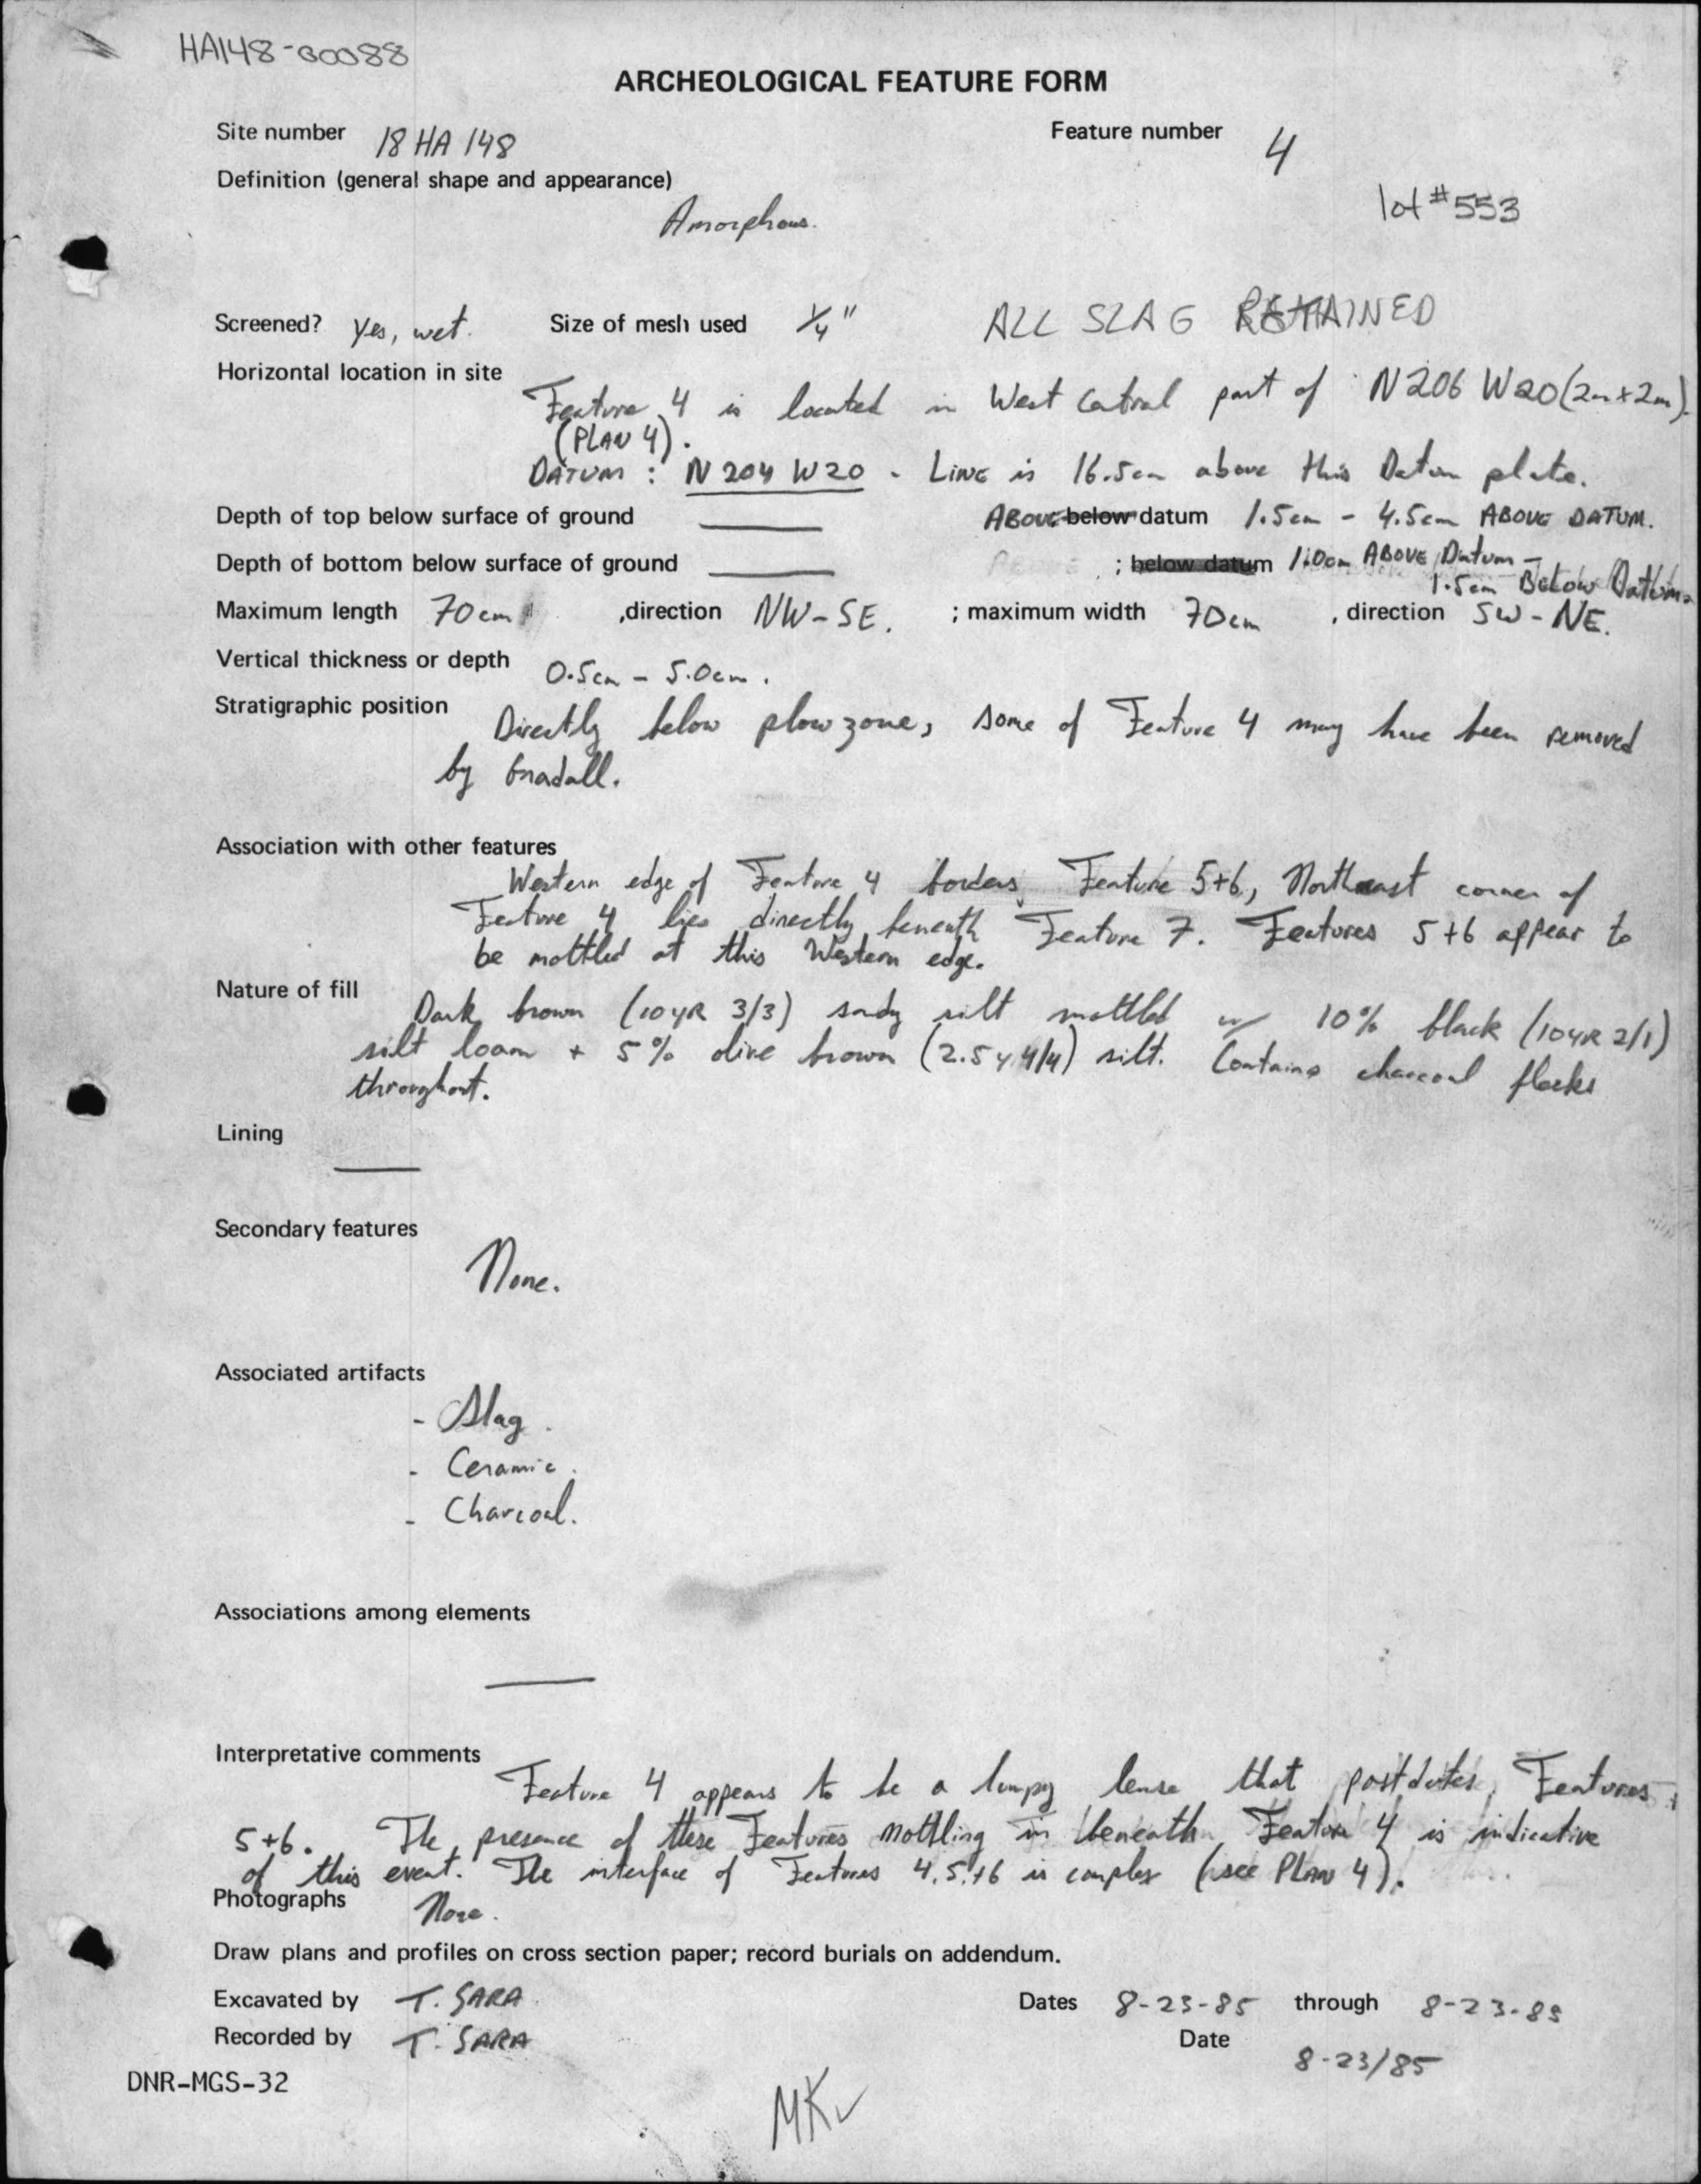 HA148-00088
ARCHEOLOGICAL FEATURE FORM
Site number 18 HA 148 Feature number 4
Definition (general shape and appearance)
Amorphous. lot #553
Screened? Yes, wet. Size of mesh used 1/4" ALL SLAG RETAINED
Horizontal location in site
Feature 4 is located in West Central part of N206 W20 (2m x 2m).
(PLAN 4).
DATUM: N 204 W20 - LINE is 16.5cm above this Datum plate.
Depth of top below surface of ground ABOVE below datum 1.5cm - 4.5cm ABOVE DATUM.
Depth of bottom below surface of ground ; below datum 1.0cm ABOVE Datum -
1.5cm Below Datum
Maximum length 70cm ,direction NW-SE. ; maximum width 70cm , direction SW-NE.
Vertical thickness or depth 0.5cm - 5.0cm.
Stratigraphic position
Directly below plowzone, some of Feature 4 may have been removed
by Gradall.
Association with other features
Western edge of Feature 4 borders Feature 5+6, Northeast corner of
Feature 4 lies directly beneath Feature 7. Features 5+6 appear to
be mottled at this Western edge.
Nature of fill
Dark brown (10YR 3/3) sandy silt mottled w/ 10% black (10YR 2/1)
silt loam + 5% olive brown (2.5y 4/4) silt. Contains charcoal flecks
throughout.
Lining
Secondary features
None.
Associated artifacts
- Slag.
- Ceramic.
- Charcoal.
Associations among elements
Interpretative comments
Feature 4 appears to be a lumpy lense that postdates Features
5+6. The presence of these Features mottling in beneath Feature 4 is indicative
of this event. The interface of Features 4,5,+6 is complex (see Plan 4).
Photographs None.
Draw plans and profiles on cross section paper; record burials on addendum.
Excavated by T. SARA Dates 8-23-85 through 8-23-85
Recorded by T. SARA Date 8-23/85
DNR-MGS-32
MK